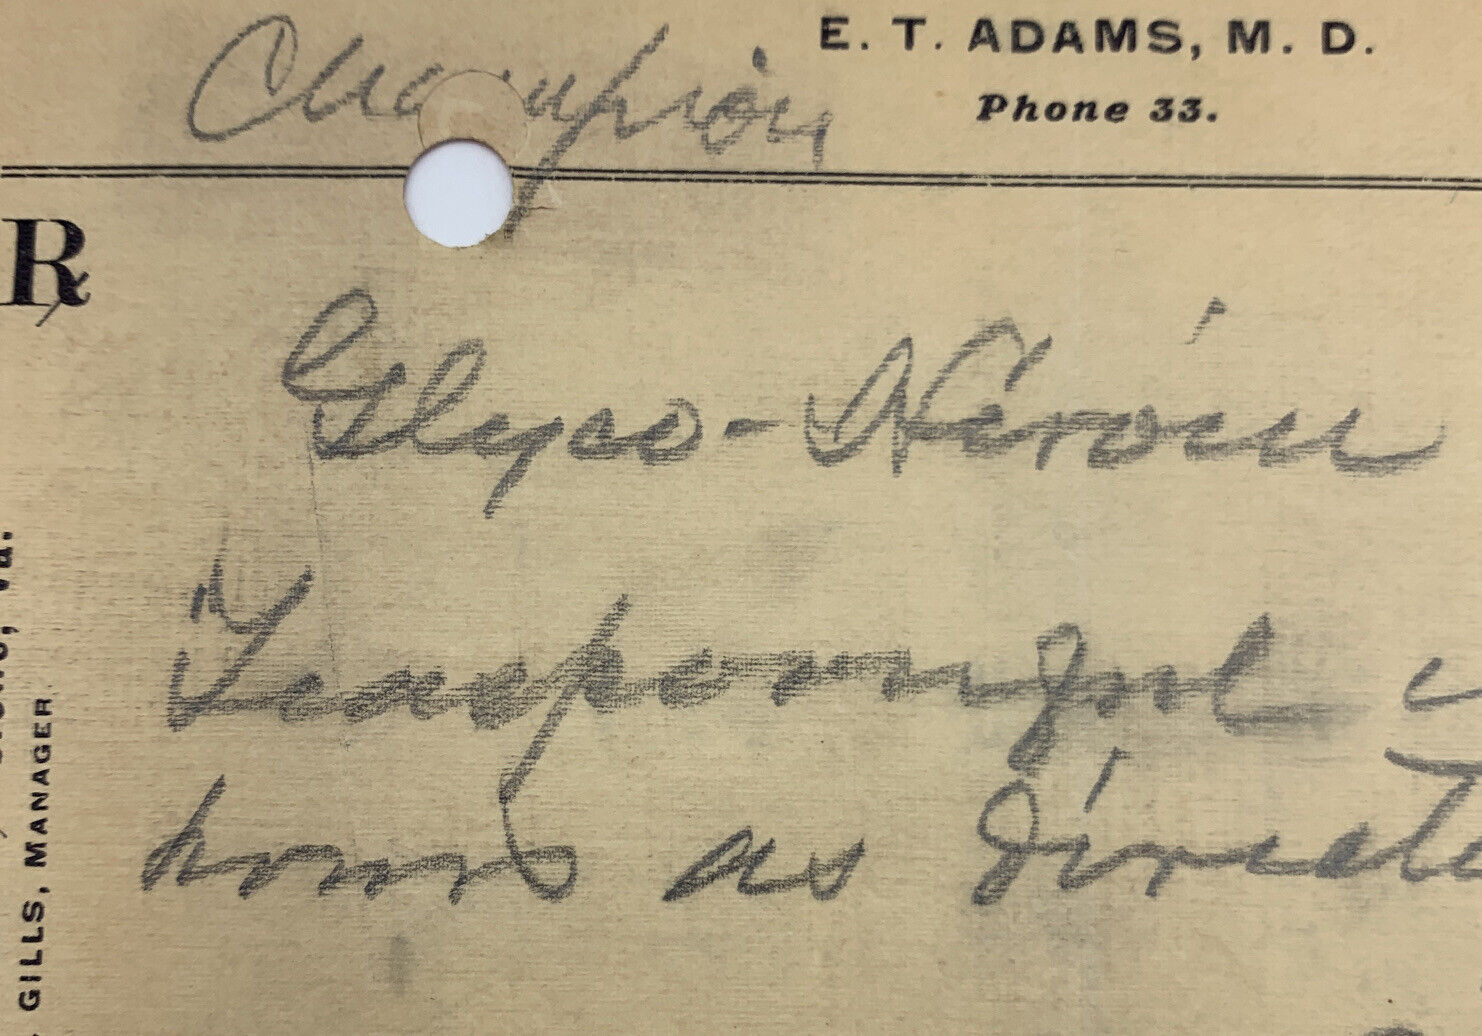 Champion
E. T. ADAMS, M. D.
Phone 33.
℞
Glyco-Heroin
Teaspoonful
hours as directe
GILLS, MANAGER
Va.